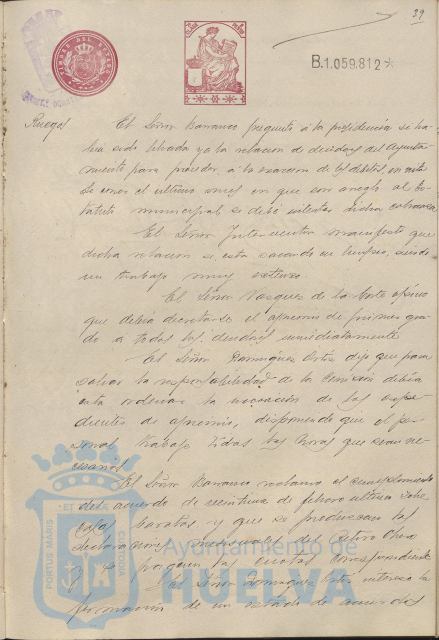 39
TIMBRE DEL ESTADO
B.1.059.812*
Ruegos
El Señor Barranco pregunta á la presidencia si ha-
bia sido librada ya la relacion de deudas del Ayunta-
miento para proceder á la exaccion de los debitos en vista
de ser el ultimo mes en que con arreglo al Es-
tatuto municipal se debe intentar dicha cobranza
El Señor Interventor manifestó que
dicha relacion se esta sacando en limpio, siendo
un trabajo muy extenso.
El Señor Vazquez de la Corte opinó
que debia decretarse el apremio de primer gra-
do a todos los deudores inmediatamente
El Señor Dominguez Ortiz dijo que para
salvar la responsabilidad de la Comisión debia
esta ordenar la incoacion de los expe-
dientes de apremio, disponiendo que el per-
sonal trabaje todas las horas que sean ne-
cesarias
El Señor Barranco reclamo el cumplimiento
del acuerdo de veintiuno de febrero ultimo sobre
casas baratas y que se produzcan las
declaraciones mensuales del Retiro Obrero
y se paguen las cuotas correspondientes
El Señor Dominguez Ortiz interesa la
formacion de un estado de acuerdos
ET TERRAE
PORTUS MARIS
CUSTODIA
Ayuntamiento de
HUELVA